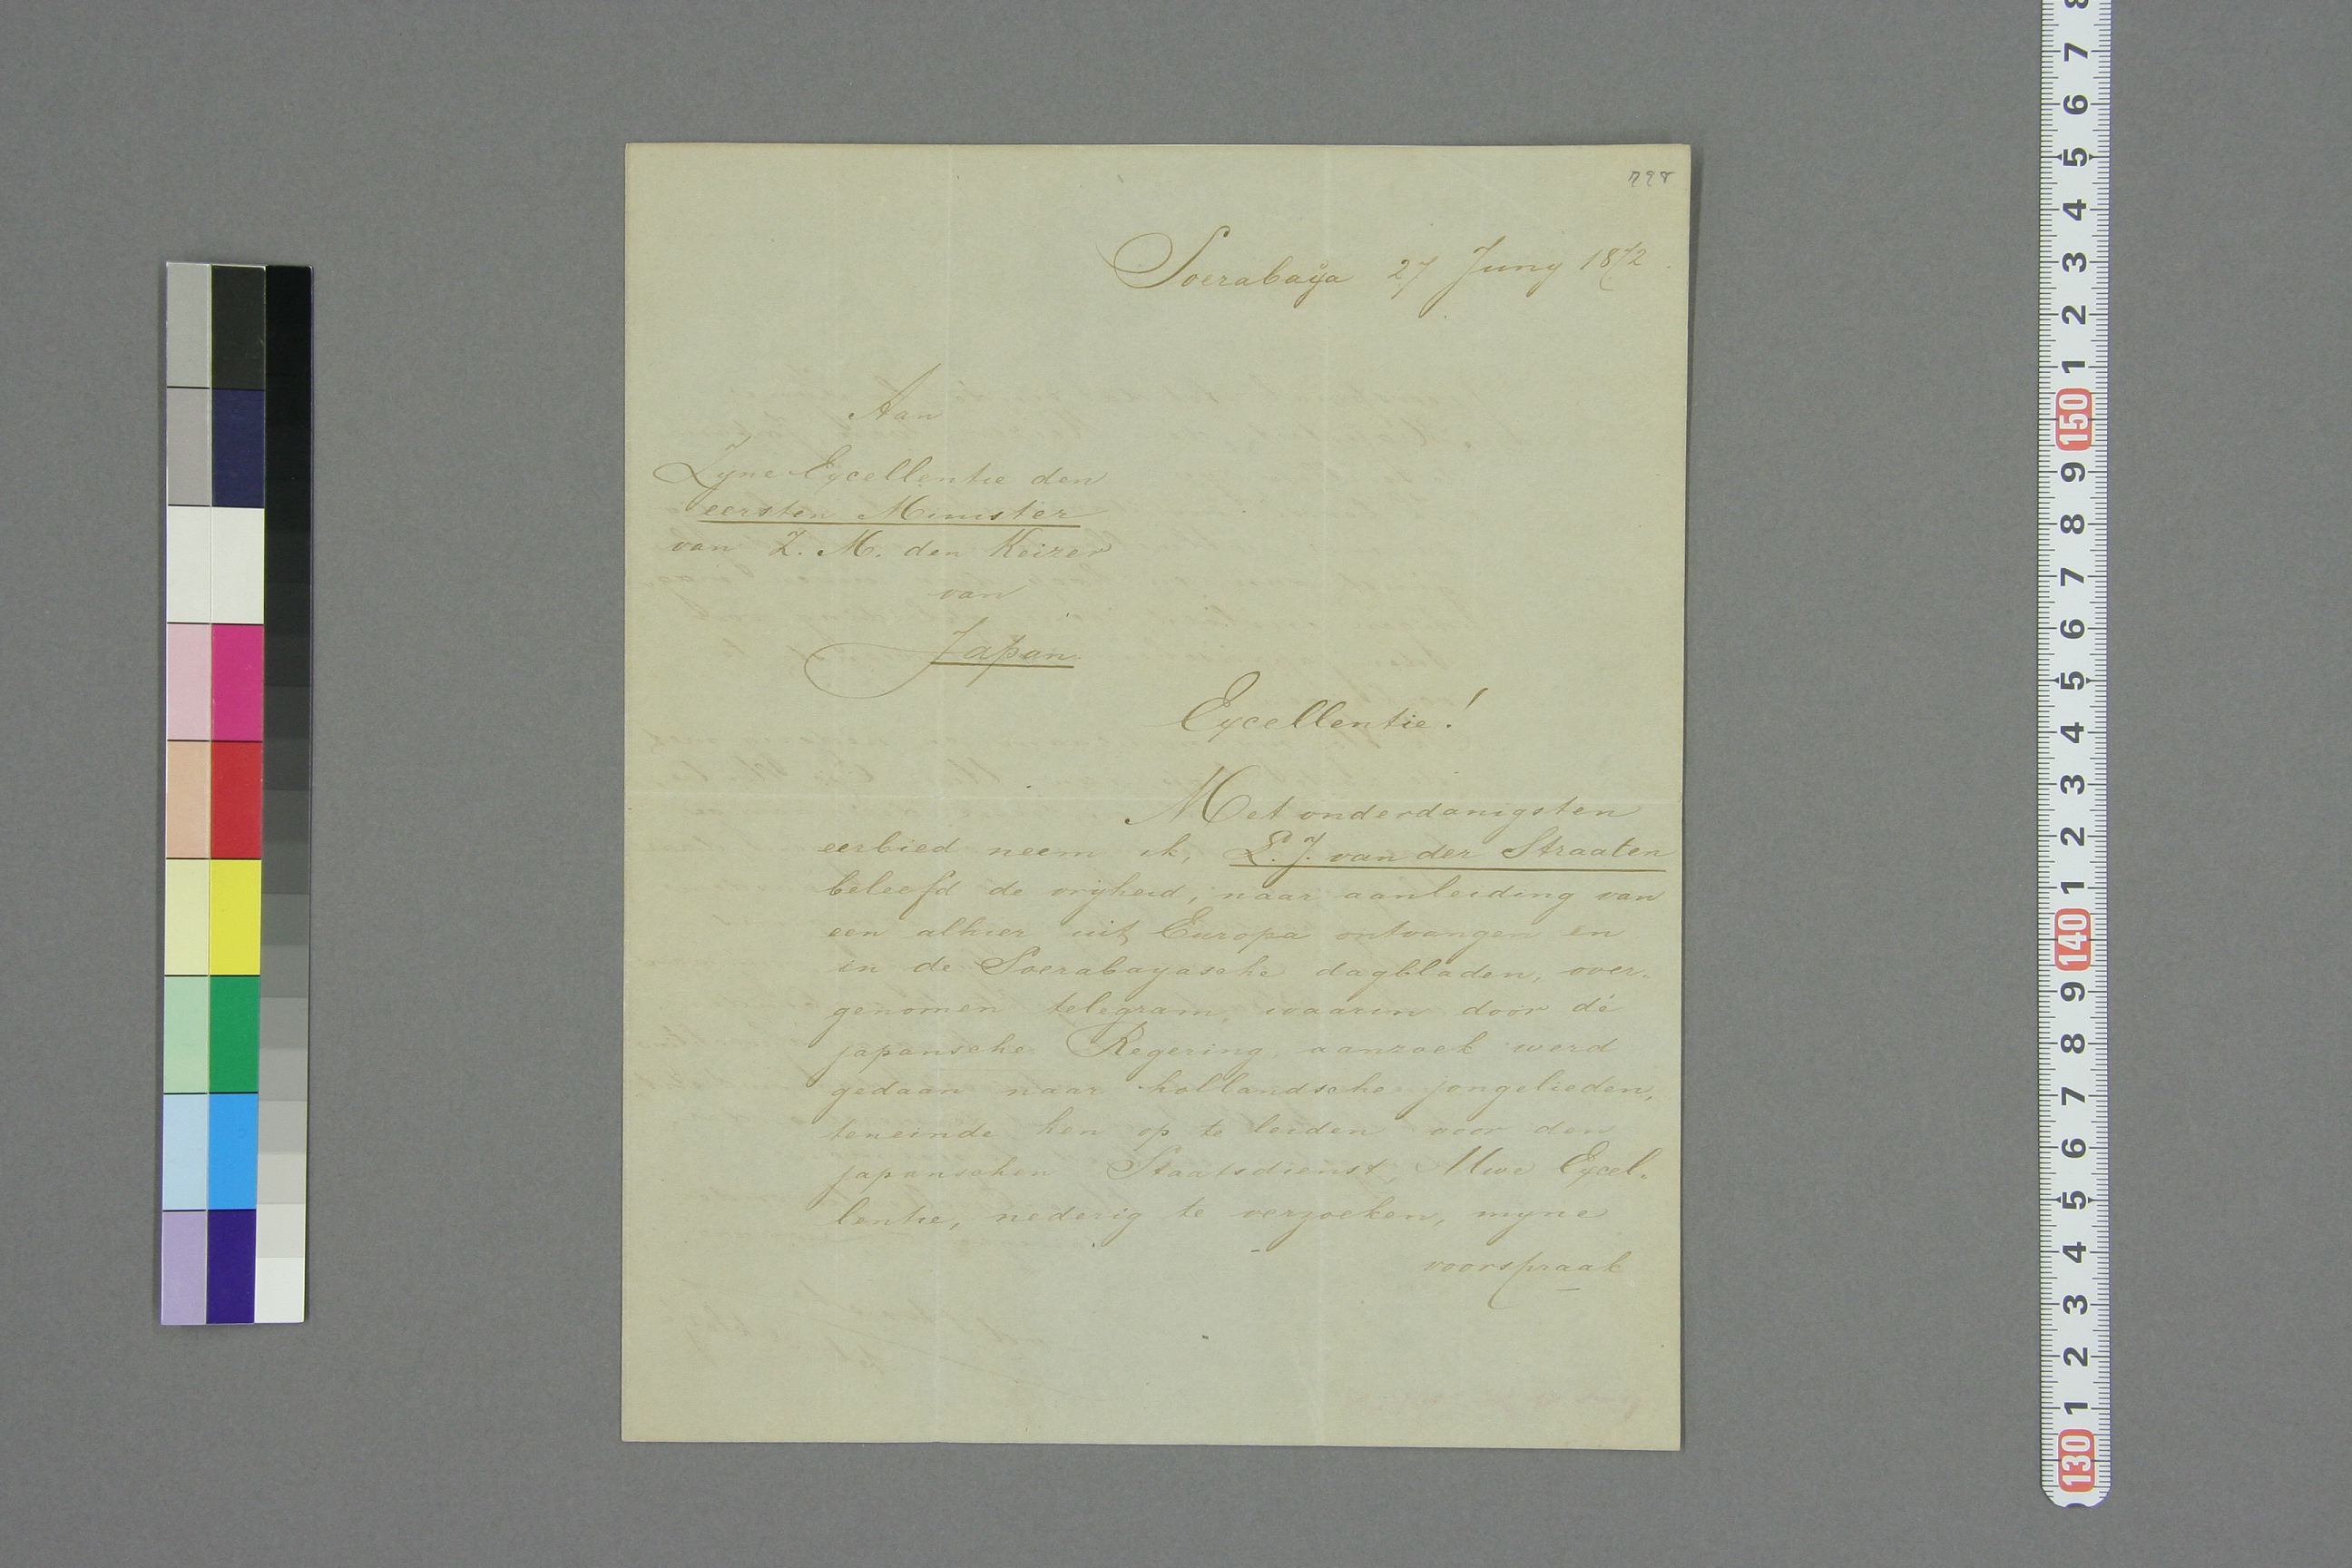 798
Soerabaÿa 27 Juny 1872.
Aan
Zyne Excellentie den
eersten Minister
van Z. M. den Keizer
van
Japan
Excellentie!
Met onderdanigsten
eerbied neem ik, L. J. van der Straaten
beleefd de vryheid, naar aanleiding van
een alhier uit Europa ontvangen en
in de Soerabayasche dagbladen, over-
genomen telegram, waarin door de
japansche Regering aanzoek werd
gedaan naar hollandsche jongelieden,
teneinde hen op te leiden voor den
japanschen Staatsdienst, Uwe Excel-
lentie, nederig te verzoeken, myne
voorspraak
8
7
6
5
4
3
2
1
150
9
8
7
6
5
4
3
2
1
140
9
8
7
6
5
4
3
2
1
130